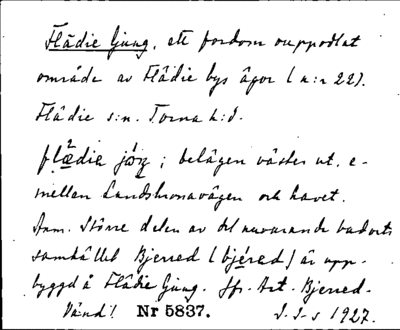 Flädie ljung, ett fordom ouppodlat
område av Flädie bys ägor (n:r 22).
Flädie s:n. Torna h:d.
belägen väster ut, e-
mellan Landskronavägen och havet.
Anm. Större delen av det nuvarande badorts
samhället Bjerred (bjéred) är upp-
byggd å Flädie ljung. Jfr. Art. Bjerred.
Vänd! Nr 5837. I. I-s 1927.